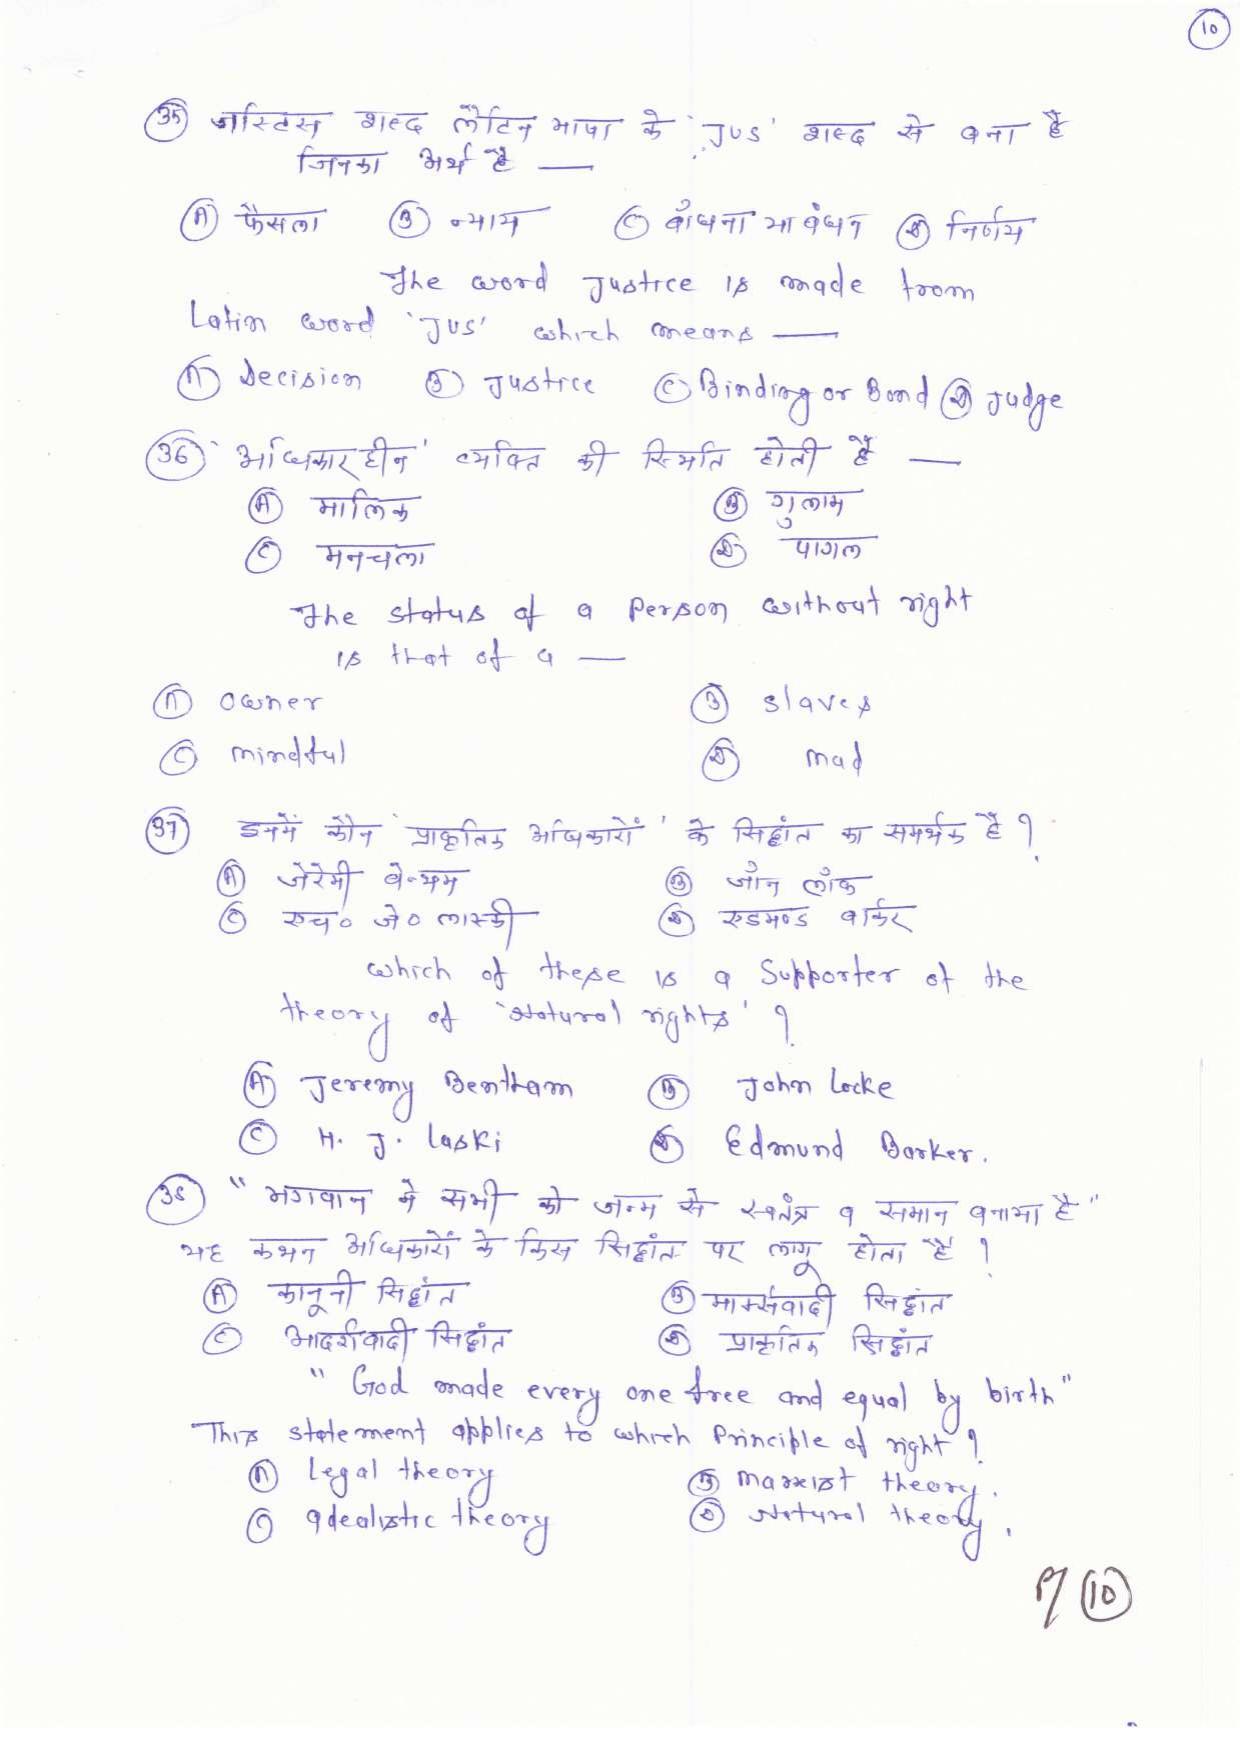 10
35 जस्टिस शब्द लैटिन भाषा के 'JUS' शब्द से बना है
जिनका अर्थ है —
A फैसला B न्याय C बाँधना या बंधन D निर्णय
The word Justice is made from
Latin word 'JUS' which means —
A Decision B Justice C Binding or Bond D Judge
36 'अधिकारहीन' व्यक्ति की स्थिति होती है —
A मालिक B गुलाम
C मनचला D पागल
The status of a person without right
is that of a —
A owner B slaves
C mindful D mad
37 इनमें कौन 'प्राकृतिक अधिकारों' के सिद्धांत का समर्थक है ?
A जेरेमी बेन्थम B जॉन लॉक
C एच० जे० लास्की D एडमण्ड बर्कर
which of these is a supporter of the
theory of 'Natural rights' ?
A Jeremy Bentham B John Locke
C H. J. Laski D Edmund Barker.
38 "भगवान ने सभी को जन्म से स्वतंत्र व समान बनाया है"
यह कथन अधिकारों के किस सिद्धांत पर लागू होता है ?
A कानूनी सिद्धांत B मार्क्सवादी सिद्धांत
C आदर्शवादी सिद्धांत D प्राकृतिक सिद्धांत
"God made every one free and equal by birth"
This statement applies to which Principle of right ?
A Legal theory B Marxist theory.
C Idealistic theory D Natural theory.
P/10